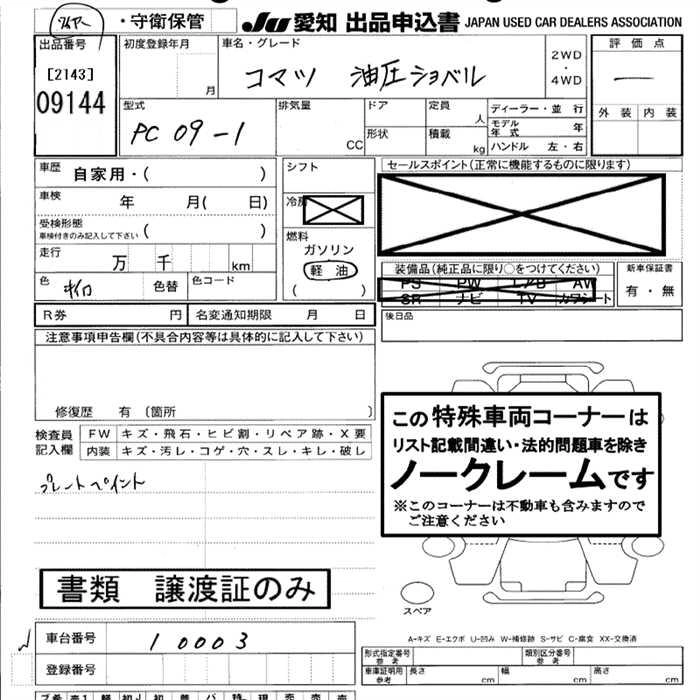 ・守衛保管 JU 愛知 出品申込書 JAPAN USED CAR DEALERS ASSOCIATION
出品番号 初度登録年月 車名・グレード 評価点
[2143] 月 コマツ 油圧ショベル 2WD・4WD —
09144
型式 排気量 ドア 定員 ディーラー・並行 外装 内装
PC 09-1 CC 形状 人 モデル年式 年
積載 kg ハンドル 左・右
車歴 自家用・( ) シフト セールスポイント(正常に機能するものに限ります)
車検 年 月( 日) 冷房
受検形態 ( ) 燃料
車検付きのみ記入して下さい ガソリン
走行 万 千 km 軽油 装備品(純正品に限り○をつけてください) 新車保証書
色 キイロ 色替 色コード ( ) PS PW エアB AW 有・無
SR ナビ TV カワシート
R券 円 名変通知期限 月 日 後日品
注意事項申告欄(不具合内容等は具体的に記入して下さい)
修復歴 有 〔箇所 〕
検査員記入欄 FW キズ・飛石・ヒビ割・リペア跡・X要
内装 キズ・汚レ・コゲ・穴・スレ・キレ・破レ
プレートペイント
この特殊車両コーナーは
リスト記載間違い・法的問題車を除き
ノークレームです
※このコーナーは不動車も含みますので
ご注意ください
書類 譲渡証のみ
スペア
A-キズ E-エクボ U-凹み W-補修跡 S-サビ C-腐食 XX-交換済
車台番号 10003
登録番号
形式指定番号 参考 類別区分番号 参考
車庫証明用 参考 長さ cm 幅 cm 高さ cm